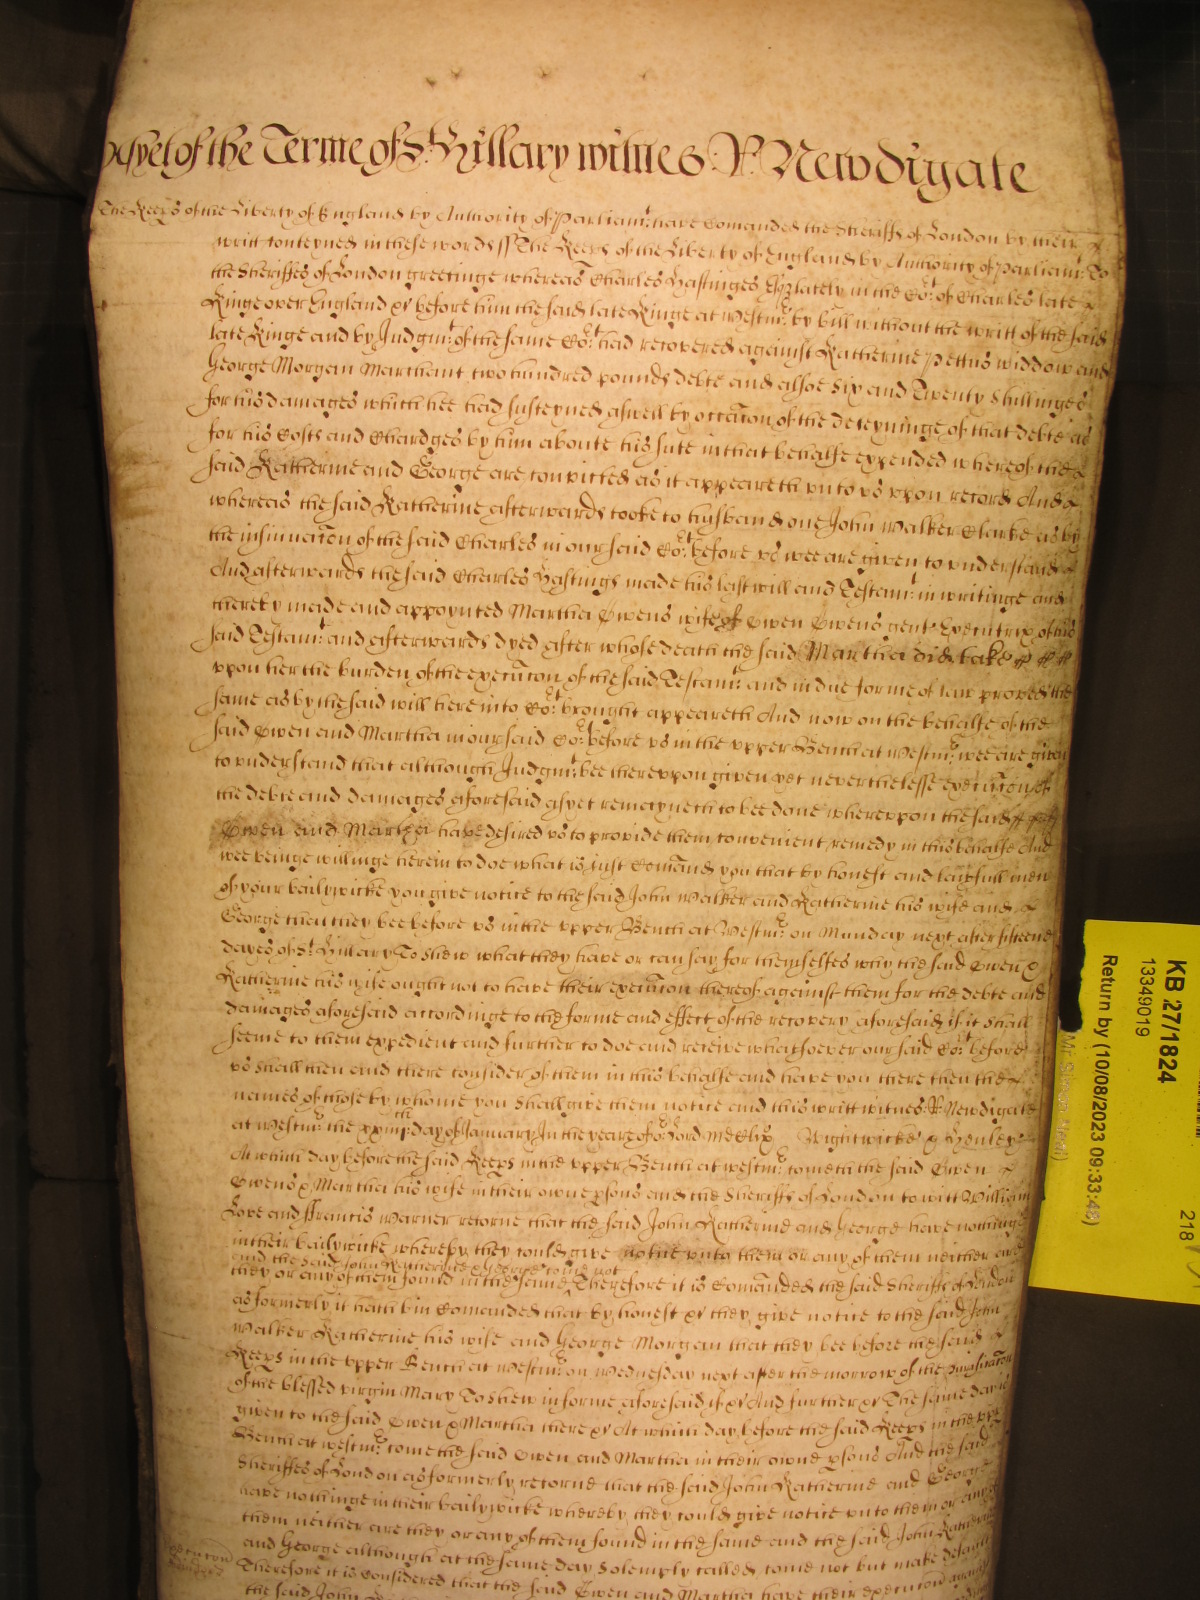 As yet of the Terme of St: Hillary witnes R: Newdigate
The Keeps of the Liberty of England by Authority of Parliamt: have Comanded the Sheriffs of London by their
writt conteyned in these words ss The Keeps of the Liberty of England by Authority of Parliamt: To
the Sheriffes of London greetinge whereas Charles Hastinges Esqr lately in the Cort: of Charles late
Kinge over England &c before him the said late Kinge at Westmr: by bill without the writt of the said
late Kinge and by Judgmt: of the same Cort: had recovered against Katherine Pettus widdow and
George Morgan Marchant two hundred pounds debte and alsoe Six and Twenty Shillinges
for his damages which hee had susteyned aswell by occacon of the deteyninge of that debte as
for his Costs and Chardges by him aboute his sute in that behalfe expended whereof the
said Katherine and George are convicted as it appeareth unto us upon record And
whereas the said Katherine afterwards tooke to husband one John Walker Clarke as by
the insinuacon of the said Charles in our said Cort: before us wee are given to understand
And afterwards the said Charles Hastings made his last will and Testamt: in writinge and
thereby made and appoynted Martha Owens wife of Owen Owens gent Executrix of his
said Testamt: and afterwards dyed after whose death the said Martha did take
upon her the burden of the execucon of the said Testamt: and in due forme of law proved the
same as by the said will here into Cort: brought appeareth And now on the behalfe of the
said Owen and Martha in our said Cort: before us in the upper Bench at Westmr: wee are given
to understand that although Judgmt: bee thereupon given yet neverthelesse execucon of
the debte and damages aforesaid as yet remayneth to bee done whereupon the said
Owen and Martha have desired us to provide them convenient remedy in this behalfe And
wee beinge willinge herein to doe what is just Comand you that by honest and lawfull men
of your bailywicke you give notice to the said John Walker and Katherine his wife and
George that they bee before us in the upper Bench at Westmr: on Munday next after fifteene
dayes of St: Hillary To shew what they have or can say for themselfes why the said Owen &
Katherine his wife ought not to have their execucon thereof against them for the debte and
damages aforesaid accordinge to the forme and effect of the recovery aforesaid if it shall
seeme to them expedient and further to doe and receive whatsoever our said Cort: before
us shall then and there consider of them in this behalfe and have you there then the
names of those by whome you shall give them notice and this writt witnes R: Newdigate
at Westmr: the xxiiith day of January In the yeare of or: Lord MDClix Wightwicke & Henley
At which day before the said Keeps in the upper Bench at Westmr: cometh the said Owen
Owens & Martha his wife in their owne psons and the Sheriffs of London to witt William
Love and Francis Warner retorne that the said John Katherine and George have nothinge
in their bailywicke whereby they could give notice unto them or any of them neither are
and the said John Katherine & George come not
they or any of them found in the same Therefore it is Comanded the said Sheriffs of London
as formerly it hath bin Comanded that by honest &c they give notice to the said John
Walker Katherine his wife and George Morgan that they bee before the said
Keeps in the upper Bench at Westmr: on Wednesday next after the morrow of the purificacon
of the blessed virgin Mary To shew in forme aforesaid if &c And further &c The same day is
given to the said Owen & Martha there &c At which day before the said Keeps in the upp
Bench at Westmr: come the said Owen and Martha in their owne psons And the said
Sheriffes of London as formerly retorne that the said John Katherine and George
have nothinge in their bailywicke whereby they could give notice unto them or any of
them neither are they or any of them found in the same and the said John Katherine
and George although at the same day solemply called come not but make default
Therefore it is Considered that the said Owen and Martha have their execucon against
the said John
KB 27/1824
13349019
Return by (10/08/2023 09:33:48)
218